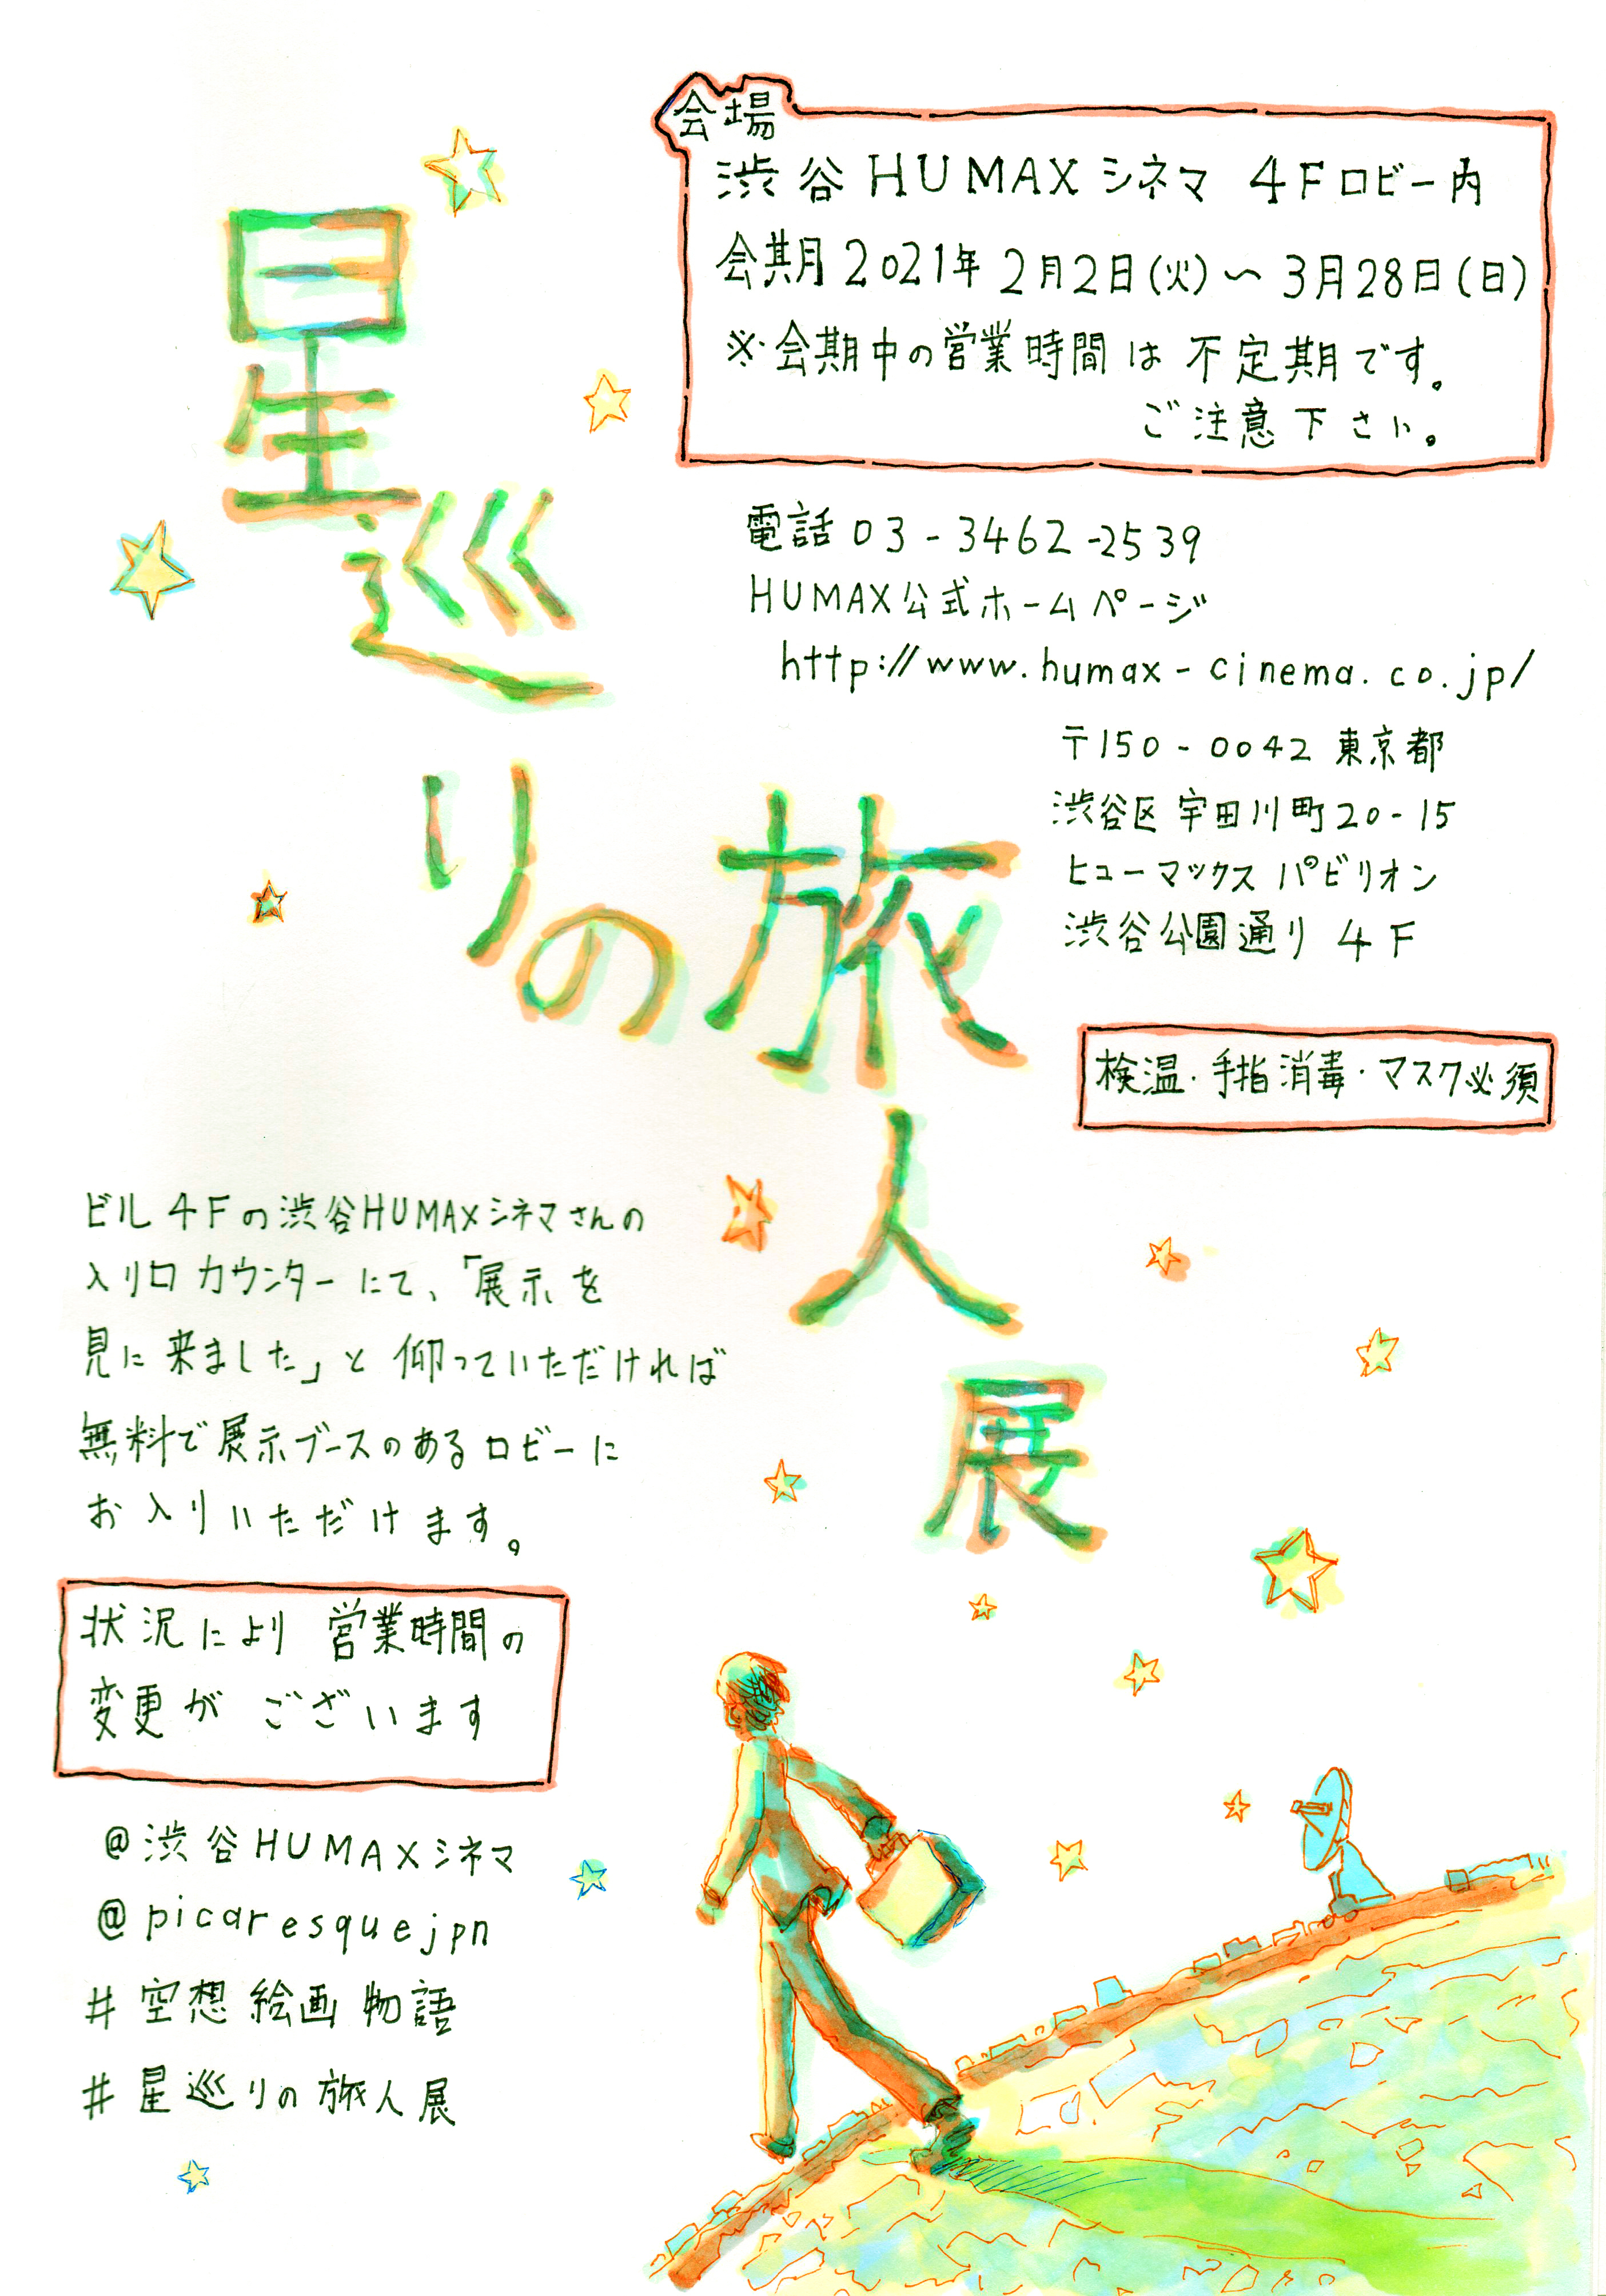 会場
渋谷HUMAXシネマ 4Fロビー内
会期 2021年 2月2日(火)〜3月28日(日)
※会期中の営業時間は不定期です。
ご注意下さい。
星巡りの旅人展
電話 03-3462-2539
HUMAX公式ホームページ
http://www.humax-cinema.co.jp/
〒150-0042 東京都
渋谷区宇田川町20-15
ヒューマックスパビリオン
渋谷公園通り 4F
検温・手指消毒・マスク必須
ビル4Fの渋谷HUMAXシネマさんの
入り口カウンターにて、「展示を
見に来ました」と仰っていただければ
無料で展示ブースのあるロビーに
お入りいただけます。
状況により営業時間の
変更がございます
@渋谷HUMAXシネマ
@picaresquejpn
#空想絵画物語
#星巡りの旅人展